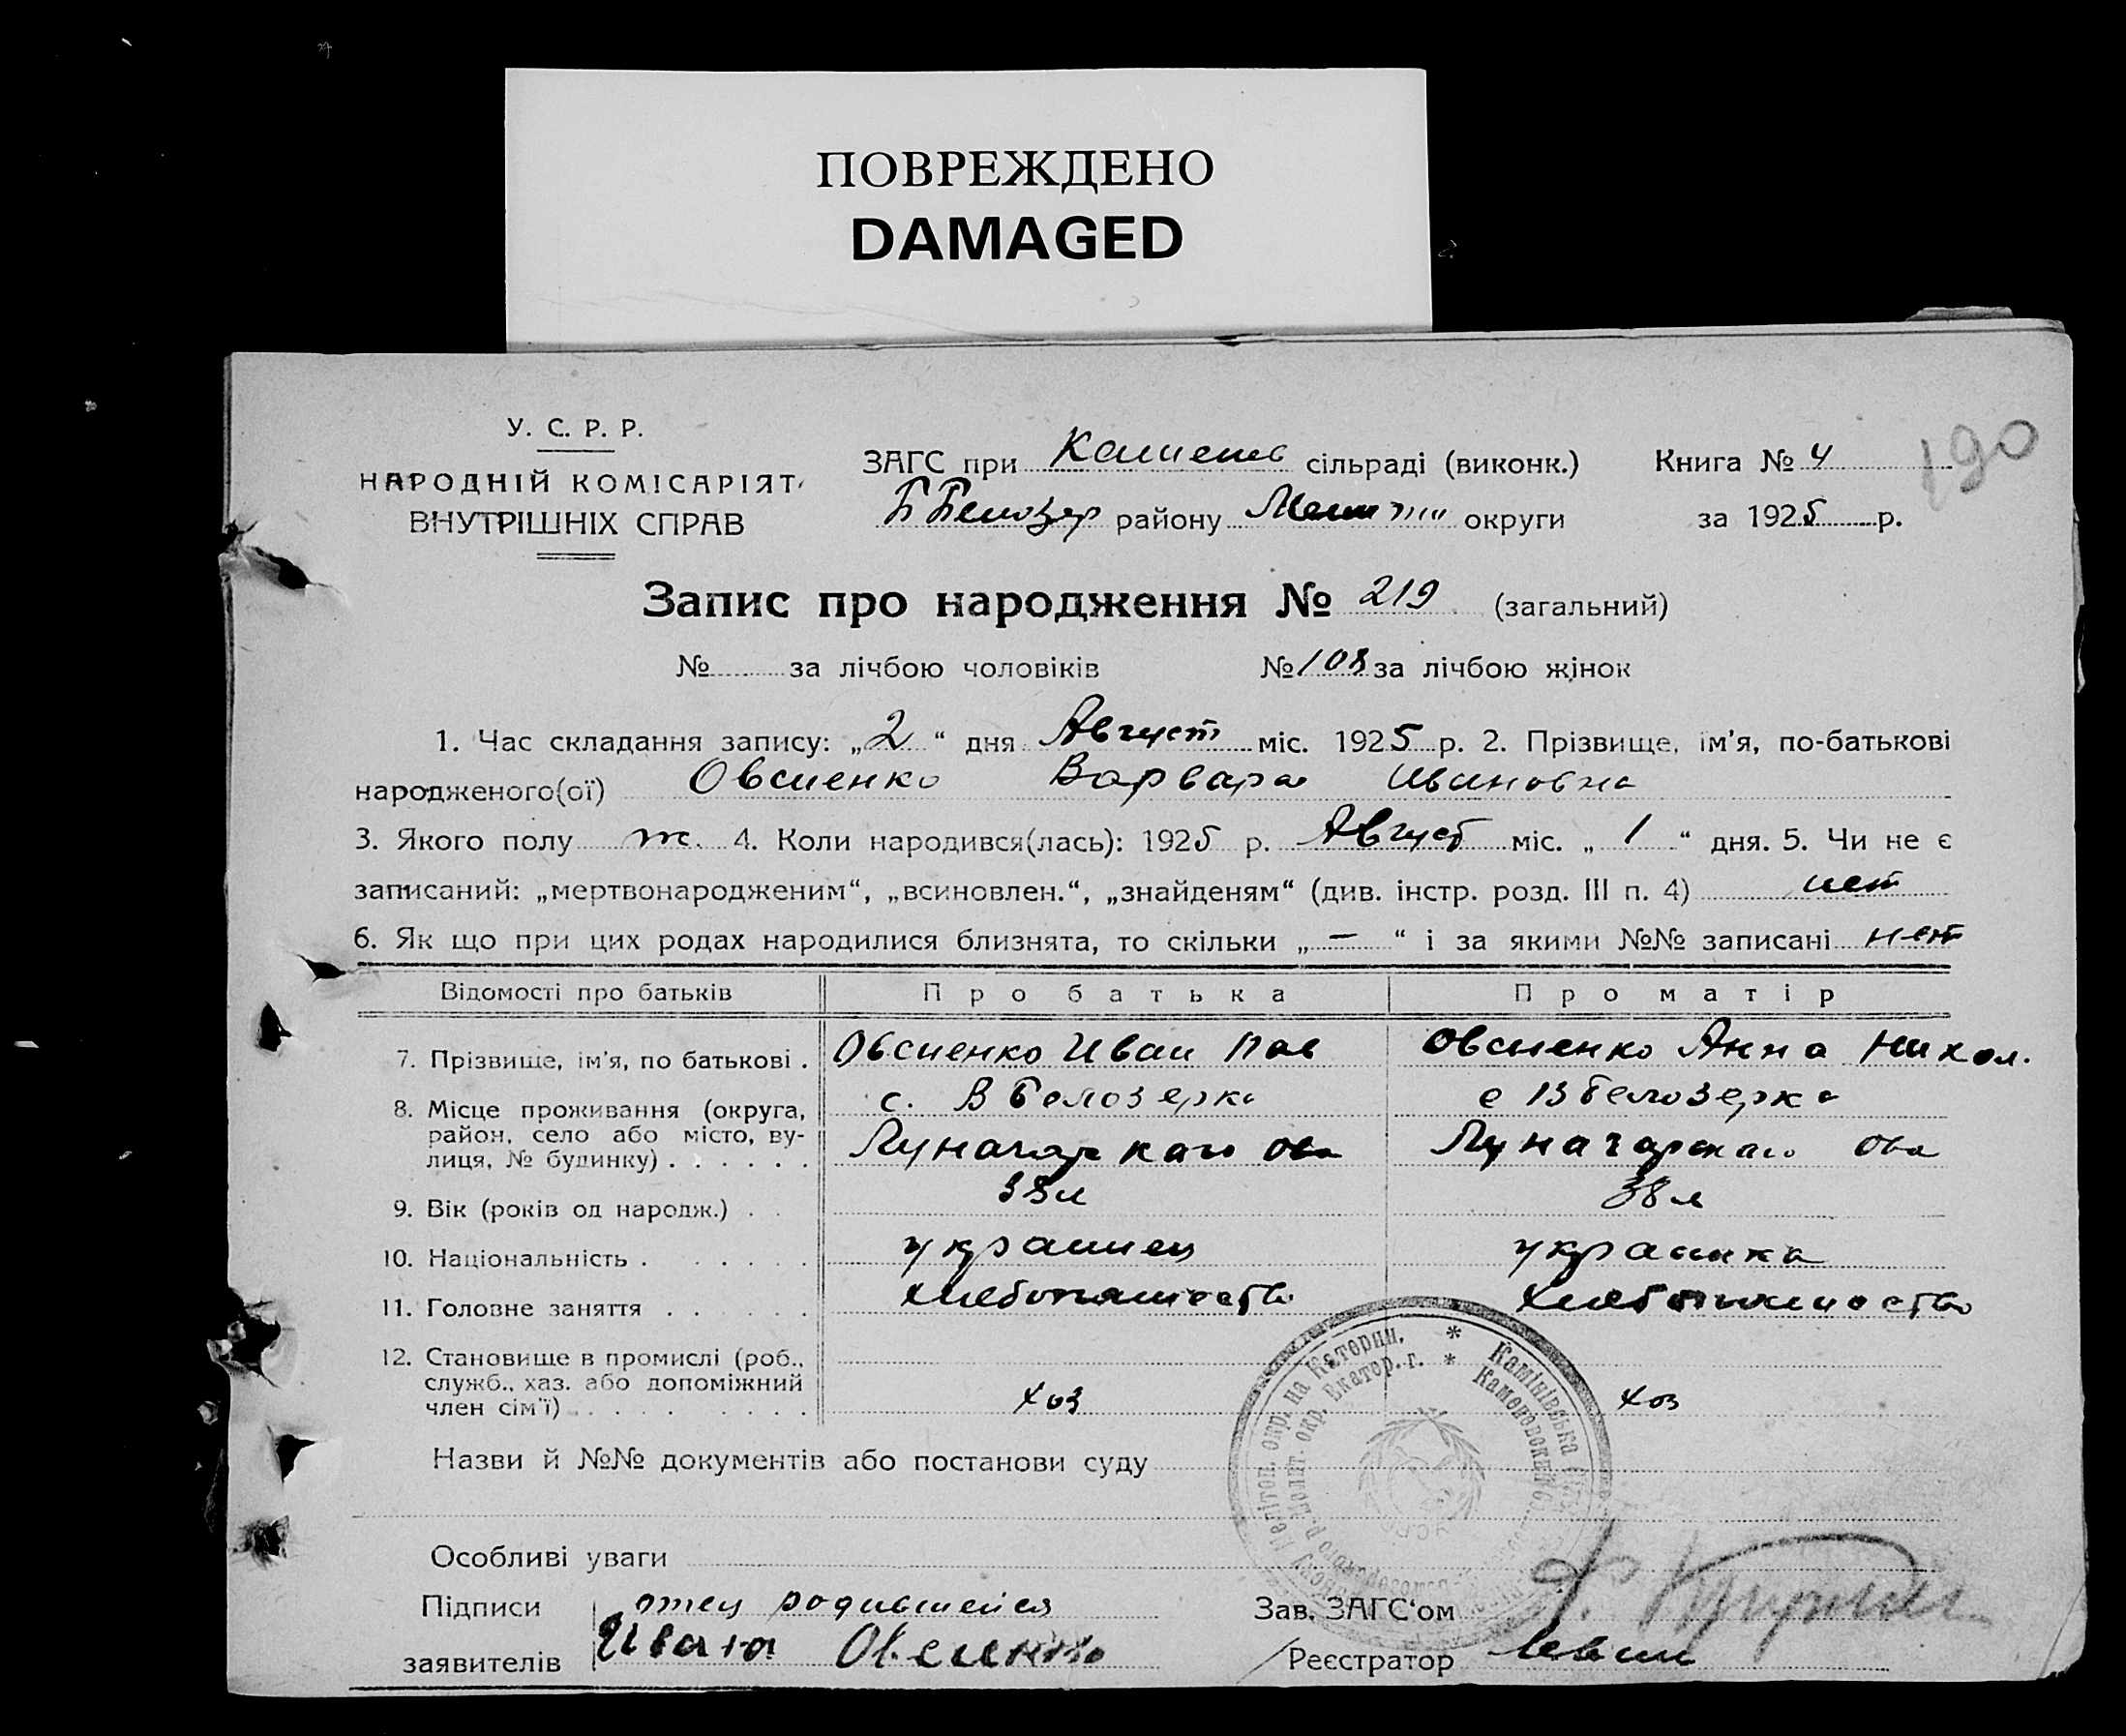 ПОВРЕЖДЕНО
DAMAGED
190
У. С. Р. Р.
НАРОДНІЙ КОМІСАРІЯТ
ВНУТРІШНІХ СПРАВ
ЗАГС при Каменс сільраді (виконк.) Книга № 4
району округи за 1925 р.
Запис про народження № 219 (загальний)
№ за лічбою чоловіків № 108 за лічбою жінок
1. Час складання запису: „2“ дня Август міс. 1925 р. 2. Прізвище, ім'я, по-батькові
народженого(ої) Овсиенко Варвара Ивановна
3. Якого полу ж. 4. Коли народився(лась): 1925 р. Август міс. „1“ дня. 5. Чи не є
записаний: „мертвонародженим“, „всиновлен.“, „знайденям“ (див. інстр. розд. III п. 4) нет
6. Як що при цих родах народилися близнята, то скільки „—“ і за якими №№ записані нет
Відомості про батьків Про батька Про матір
7. Прізвище, ім'я, по батькові . Овсиенко Иван Пав Овсиенко Анна Никол.
8. Місце проживання (округа, с. В Белозерка с В Белозерка
район, село або місто, ву-
лиця, № будинку) . . . . . . Луначарскаго ова Луначарскаго ова
9. Вік (років од народж.) . . 38 л
10. Національність . . . . . . украинец украинка
11. Головне заняття . . . . . хлебопашество хлебопашество
12. Становище в промислі (роб.,
служб., хаз. або допоміжний
член сім'ї) . . . . . . . . хоз хоз
Назви й №№ документів або постанови суду
Особливі уваги
Підписи отец родившейся Зав. ЗАГС‘ом
заявителів Ивана Овсиенко Реєстратор Левин